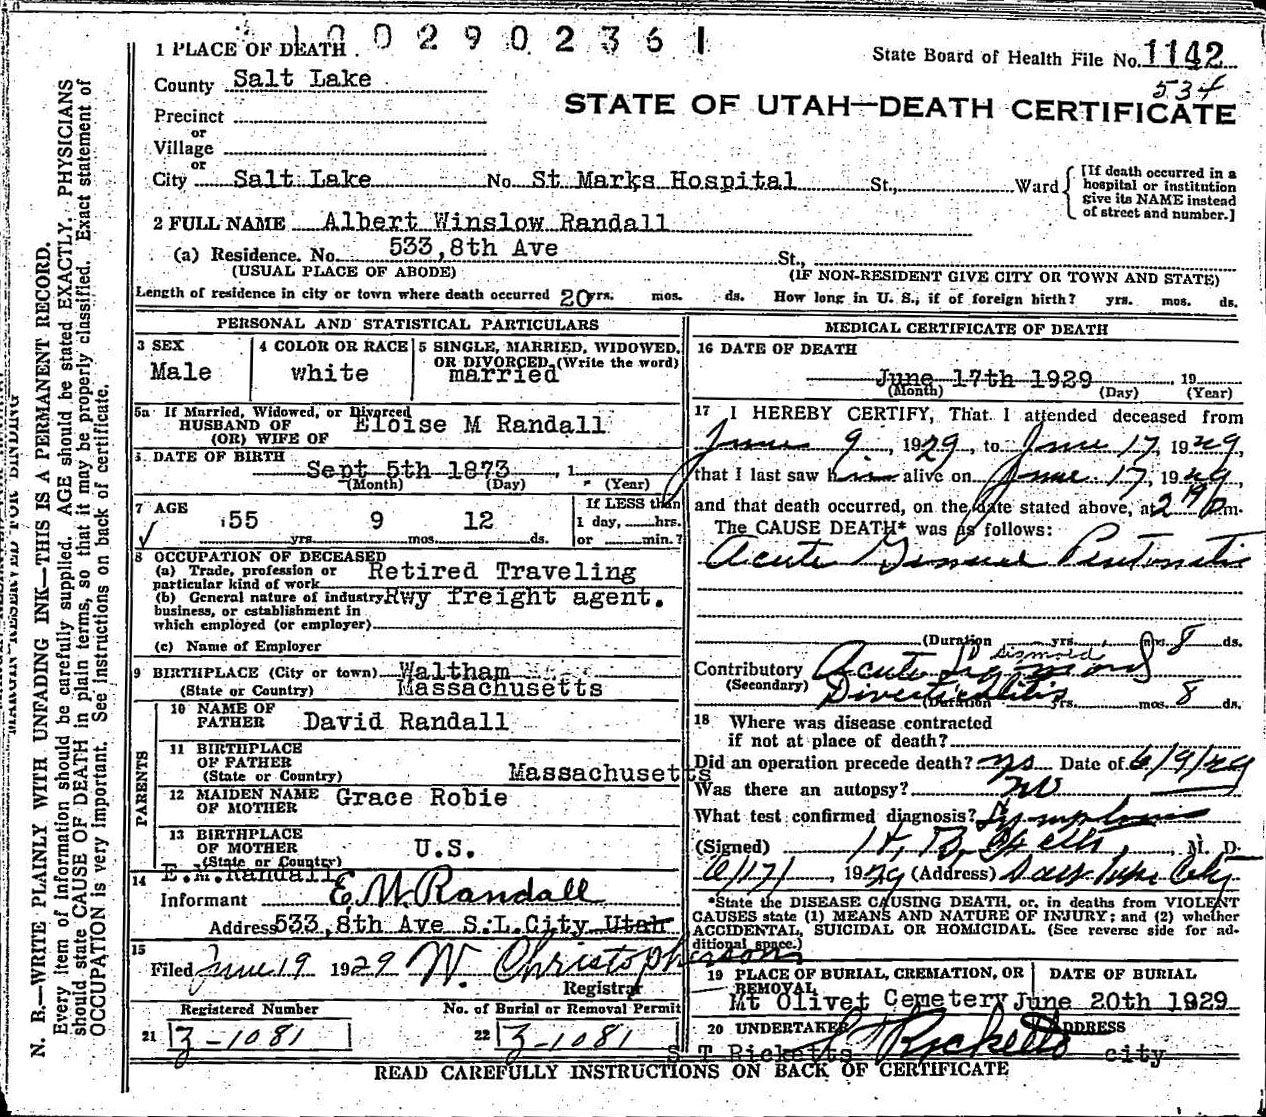 1002902361
1 PLACE OF DEATH
State Board of Health File No. 1142
534
County Salt Lake
STATE OF UTAH—DEATH CERTIFICATE
Precinct
or
Village
or
City Salt Lake No St Marks Hospital St., Ward
[If death occurred in a
hospital or institution
give its NAME instead
of street and number.]
2 FULL NAME Albert Winslow Randall
(a) Residence. No. 533,8th Ave St.,
(USUAL PLACE OF ABODE) (IF NON-RESIDENT GIVE CITY OR TOWN AND STATE)
Length of residence in city or town where death occurred 20 yrs. mos. ds. How long in U. S., if of foreign birth? yrs. mos. ds.
PERSONAL AND STATISTICAL PARTICULARS
3 SEX
Male
4 COLOR OR RACE
white
5 SINGLE, MARRIED, WIDOWED,
OR DIVORCED. (Write the word)
married
5a If Married, Widowed, or Divorced
HUSBAND OF Eloise M Randall
(OR) WIFE OF
DATE OF BIRTH
Sept 5th 1873 , 1
(Month) (Day) (Year)
7 AGE
55 yrs. 9 mos. 12 ds.
If LESS than
1 day, hrs.
or min.?
8 OCCUPATION OF DECEASED
(a) Trade, profession or
particular kind of work Retired Traveling
(b) General nature of industry Rwy freight agent.
business, or establishment in
which employed (or employer)
(c) Name of Employer
9 BIRTHPLACE (City or town) Waltham
(State or Country) Massachusetts
PARENTS
10 NAME OF
FATHER David Randall
11 BIRTHPLACE
OF FATHER
(State or Country) Massachusetts
12 MAIDEN NAME
OF MOTHER Grace Robie
13 BIRTHPLACE
OF MOTHER U.S.
(State or Country)
E.M.Randall
14
Informant E M Randall
Address 533,8th Ave S.L.City Utah
15
Filed June 19 1929 W. Christopherson
Registrar
Registered Number No. of Burial or Removal Permit
21 Z-1081 22 Z-1081
MEDICAL CERTIFICATE OF DEATH
16 DATE OF DEATH
June 17th 1929 , 19
(Month) (Day) (Year)
17 I HEREBY CERTIFY, That I attended deceased from
June 9, 1929, to June 17, 1929,
that I last saw him alive on June 17, 1929,
and that death occurred, on the date stated above, at 2 19 p m.
The CAUSE DEATH* was as follows:
Acute General Peritonitis
(Duration yrs. mos. 8 ds.
Sigmoid
Contributory Acute Sigmoid
(Secondary) Diverticulitis
(Duration yrs. mos. 8 ds.
18 Where was disease contracted
if not at place of death?
Did an operation precede death? yes Date of 6/9/29
Was there an autopsy? no
What test confirmed diagnosis? Symptoms
(Signed) , M. D.
6/17/ , 1929 (Address) Salt Lake City
*State the DISEASE CAUSING DEATH, or, in deaths from VIOLENT
CAUSES state (1) MEANS AND NATURE OF INJURY; and (2) whether
ACCIDENTAL, SUICIDAL OR HOMICIDAL. (See reverse side for ad-
ditional space.)
19 PLACE OF BURIAL, CREMATION, OR
REMOVAL
Mt Olivet Cemetery
DATE OF BURIAL
June 20th 1929
20 UNDERTAKER ADDRESS
S T Ricketts Ricketts city
READ CAREFULLY INSTRUCTIONS ON BACK OF CERTIFICATE
N. B.—WRITE PLAINLY WITH UNFADING INK—THIS IS A PERMANENT RECORD.
Every item of information should be carefully supplied. AGE should be stated EXACTLY. PHYSICIANS
should state CAUSE OF DEATH in plain terms, so that it may be properly classified. Exact statement of
OCCUPATION is very important. See instructions on back of certificate.
MARGIN RESERVED FOR BINDING